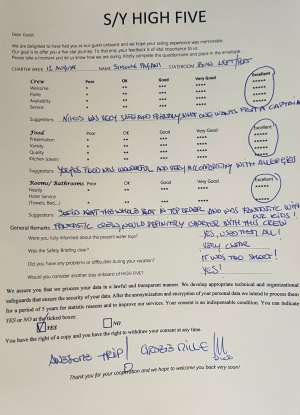 S/Y HIGH FIVE
Dear Guest
We are delighted to have had you as our guest onboard and we hope your sailing experience was memorable.
Our goal is to offer you a five star journey. To this end, your feedback is of vital importance to us.
Please take a moment and let us know how we are doing. Kindly complete this questionnaire and place in the envelope.
CHARTER WEEK 12 AUGUST NAME STATEROOM BOW LEFT PORT
Crew Poor OK Good Very Good Excellent
Welcome * ** *** **** *****
Polite * ** *** **** *****
Availability * ** *** **** *****
Service * ** *** **** *****
Suggestions NIKOS WAS VERY SAFE AND FRIENDLY, WHAT ONE WANTS FROM A CAPTAIN
Food Poor OK Good Very Good Excellent
Presentation * ** *** **** *****
Variety * ** *** **** *****
Quality * ** *** **** *****
Kitchen (clean) * ** *** **** *****
Suggestions FOOD WAS WONDERFUL AND VERY ACCOMODATING WITH ALLERGIES
Rooms/ Bathrooms Poor OK Good Very Good Excellent
Neatly * ** *** **** *****
Hotel Service * ** *** **** *****
(Towels, Bed,..) * ** *** **** *****
Suggestions KEPT THE WHOLE BOAT IN TOP ORDER AND WAS FANTASTIC WITH OUR KIDS!
General Remarks FANTASTIC CREW, WOULD DEFINITELY CHARTER WITH THIS CREW
Were you fully informed about the present water toys? YES, USED THEM ALL!
Was the Safety Briefing clear? VERY CLEAR
Did you have any problems or difficulties during your vacation? IT WAS TOO SHORT!
Would you consider another trip onboard of HIGH FIVE? YES!
We assure you that we process your data in a lawful and transparent manner. We develop appropriate technical and organizational
safeguards that ensure the security of your data. After the anonymization and encryption of your personal data we intend to process them
for a period of 5 years for statistic reasons and to improve our services. Your consent is an indispensable condition. You can indicate
YES or NO at the ticked boxes:
YES NO
You have the right of a copy and you have the right to withdraw your consent at any time.
AWESOME TRIP!
Thank you for your cooperation and we hope to welcome you back very soon!